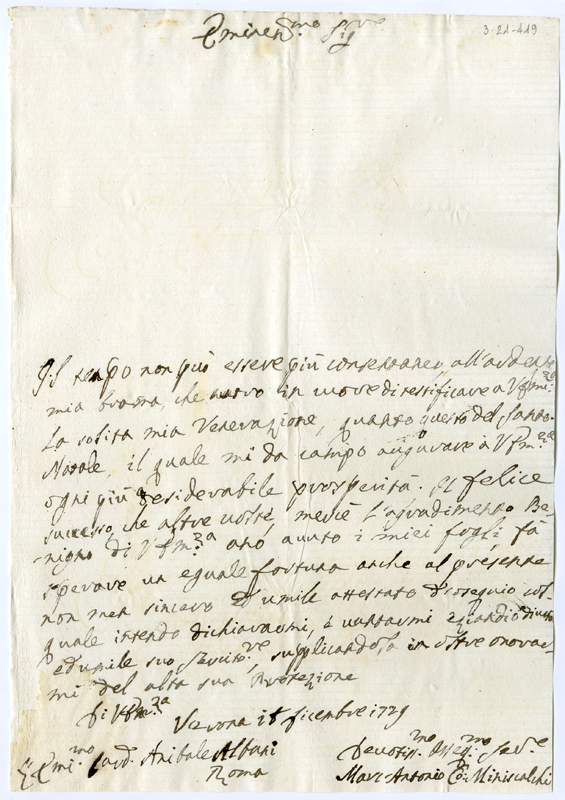 Eminen.mo Sig.re
3-21-419
Il tempo non può essere più consentaneo all'ardente
mia brama, che nutro in cuore di testificare a V. Em.za
La solita mia Venerazione, quanto questo del Santo
Natale, il quale mi da campo augurare à V. Em.za
ogni più desiderabile prosperità. Il felice
successo, che altre volte, mercè L'agradimento Be-
nigno di V. Em.za anò auuto i miei fogli, fà
sperare un eguale fortuna anche al presente
non men sincero ed umile attestato d'ossequio col
quale intendo dichiararmi, è uantarmi eziandio
ed umile suo Seruito.re, supplicandola in oltre onorar-
mi del alta sua Protezione
Di V. Em.za
Verona dicembre 1729
Emi.mo Card. Anibale Albani
Roma
Deuotiss.mo Osseq.mo Ser.e
Marc'Antonio Co: Miniscalchi